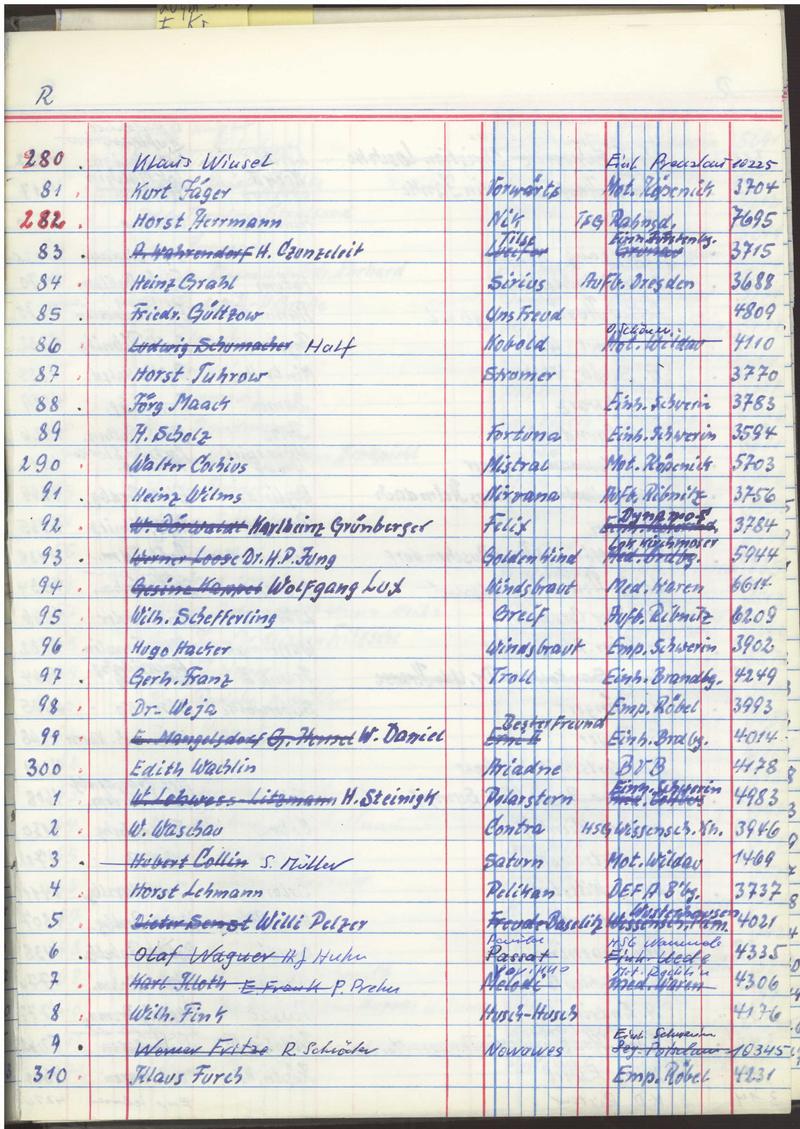 R
280 . Klaus Winsel Einh. Prenzlau 10225
81 . Kurt Jäger Vorwärts Mot. Köpenick 3704
282 . Horst Herrmann Nik TSG Rahnsd. 7695
83 . A. Wahrendorf H. Czonzeleit Tilse Luzifer Einh. Fürstenbg. Grünau 3715
84 . Heinz Grahl Sirius Aufb. Dresden 3688
85 . Friedr. Gültzow Uns Freud 4809
86 . Ludwig Schumacher Half Kobold O. Schönew. Mot. Wildau 4110
87 . Horst Tuhrow Stromer 3770
88 . Jörg Maack Einh. Schwerin 3783
89 . H. Scholz Fortuna Einh. Schwerin 3594
290 . Walter Cochius Mistral Mot. Köpenick 5703
91 . Heinz Wilms Nirvana Aufb. Ribnitz 3756
92 . W. Dörwaldt Karlheinz Grünberger Felix Dynamo S. 3784
93 . Werner Loose Dr. H.P. Jung Golden Wind Lok Kirchmöser Med. Brdbg. 5944
94 . Gesine Kappel Wolfgang Lux Windsbraut Med. Waren 6617
95 . Wilh. Schefferling Greif Aufb. Ribnitz 6209
96 . Hugo Hacker Windsbraut Emp. Schwerin 3902
97 . Gerh. Franz Troll Einh. Brandbg. 4249
98 . Dr. Weja Emp. Röbel 3993
99 . E. Mangelsdorf G. Hensel W. Daniel Bester Freund Erne II Einh. Brdbg. 4014
300 . Edith Wachlin Ariadne BVB 4178
1 . W. Lehwess-Litzmann H. Steinigk Polarstern Einh. Schwerin 4983
2 . W. Waschau Contra HSG Wissensch. Kn. 3946
3 . Hubert Collin S. Müller Saturn Mot. Wildau 1469
4 . Horst Lehmann Pelikan DEFA B'bg. 3737
5 . Dieter Senst Willi Pelzer Freude Baselitz Wusterhausen 4021
6 . Olaf Wagner HJ Huhn Passat 4335
7 . Karl Kloth E. Frank P. Prehn Melodi Med. Waren 4306
8 . Wilh. Fink Husch-Husch 4176
9 . Werner Fritze R. Schröter Nowawes Einh. Schwerin 10345
310 . Klaus Furch Emp. Röbel 4231